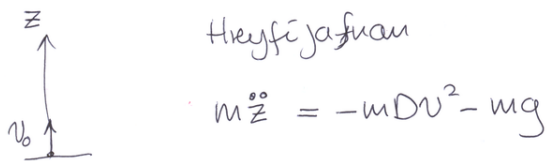 z
Hreyfijafnan
m z̈ = -mDv² - mg
v₀